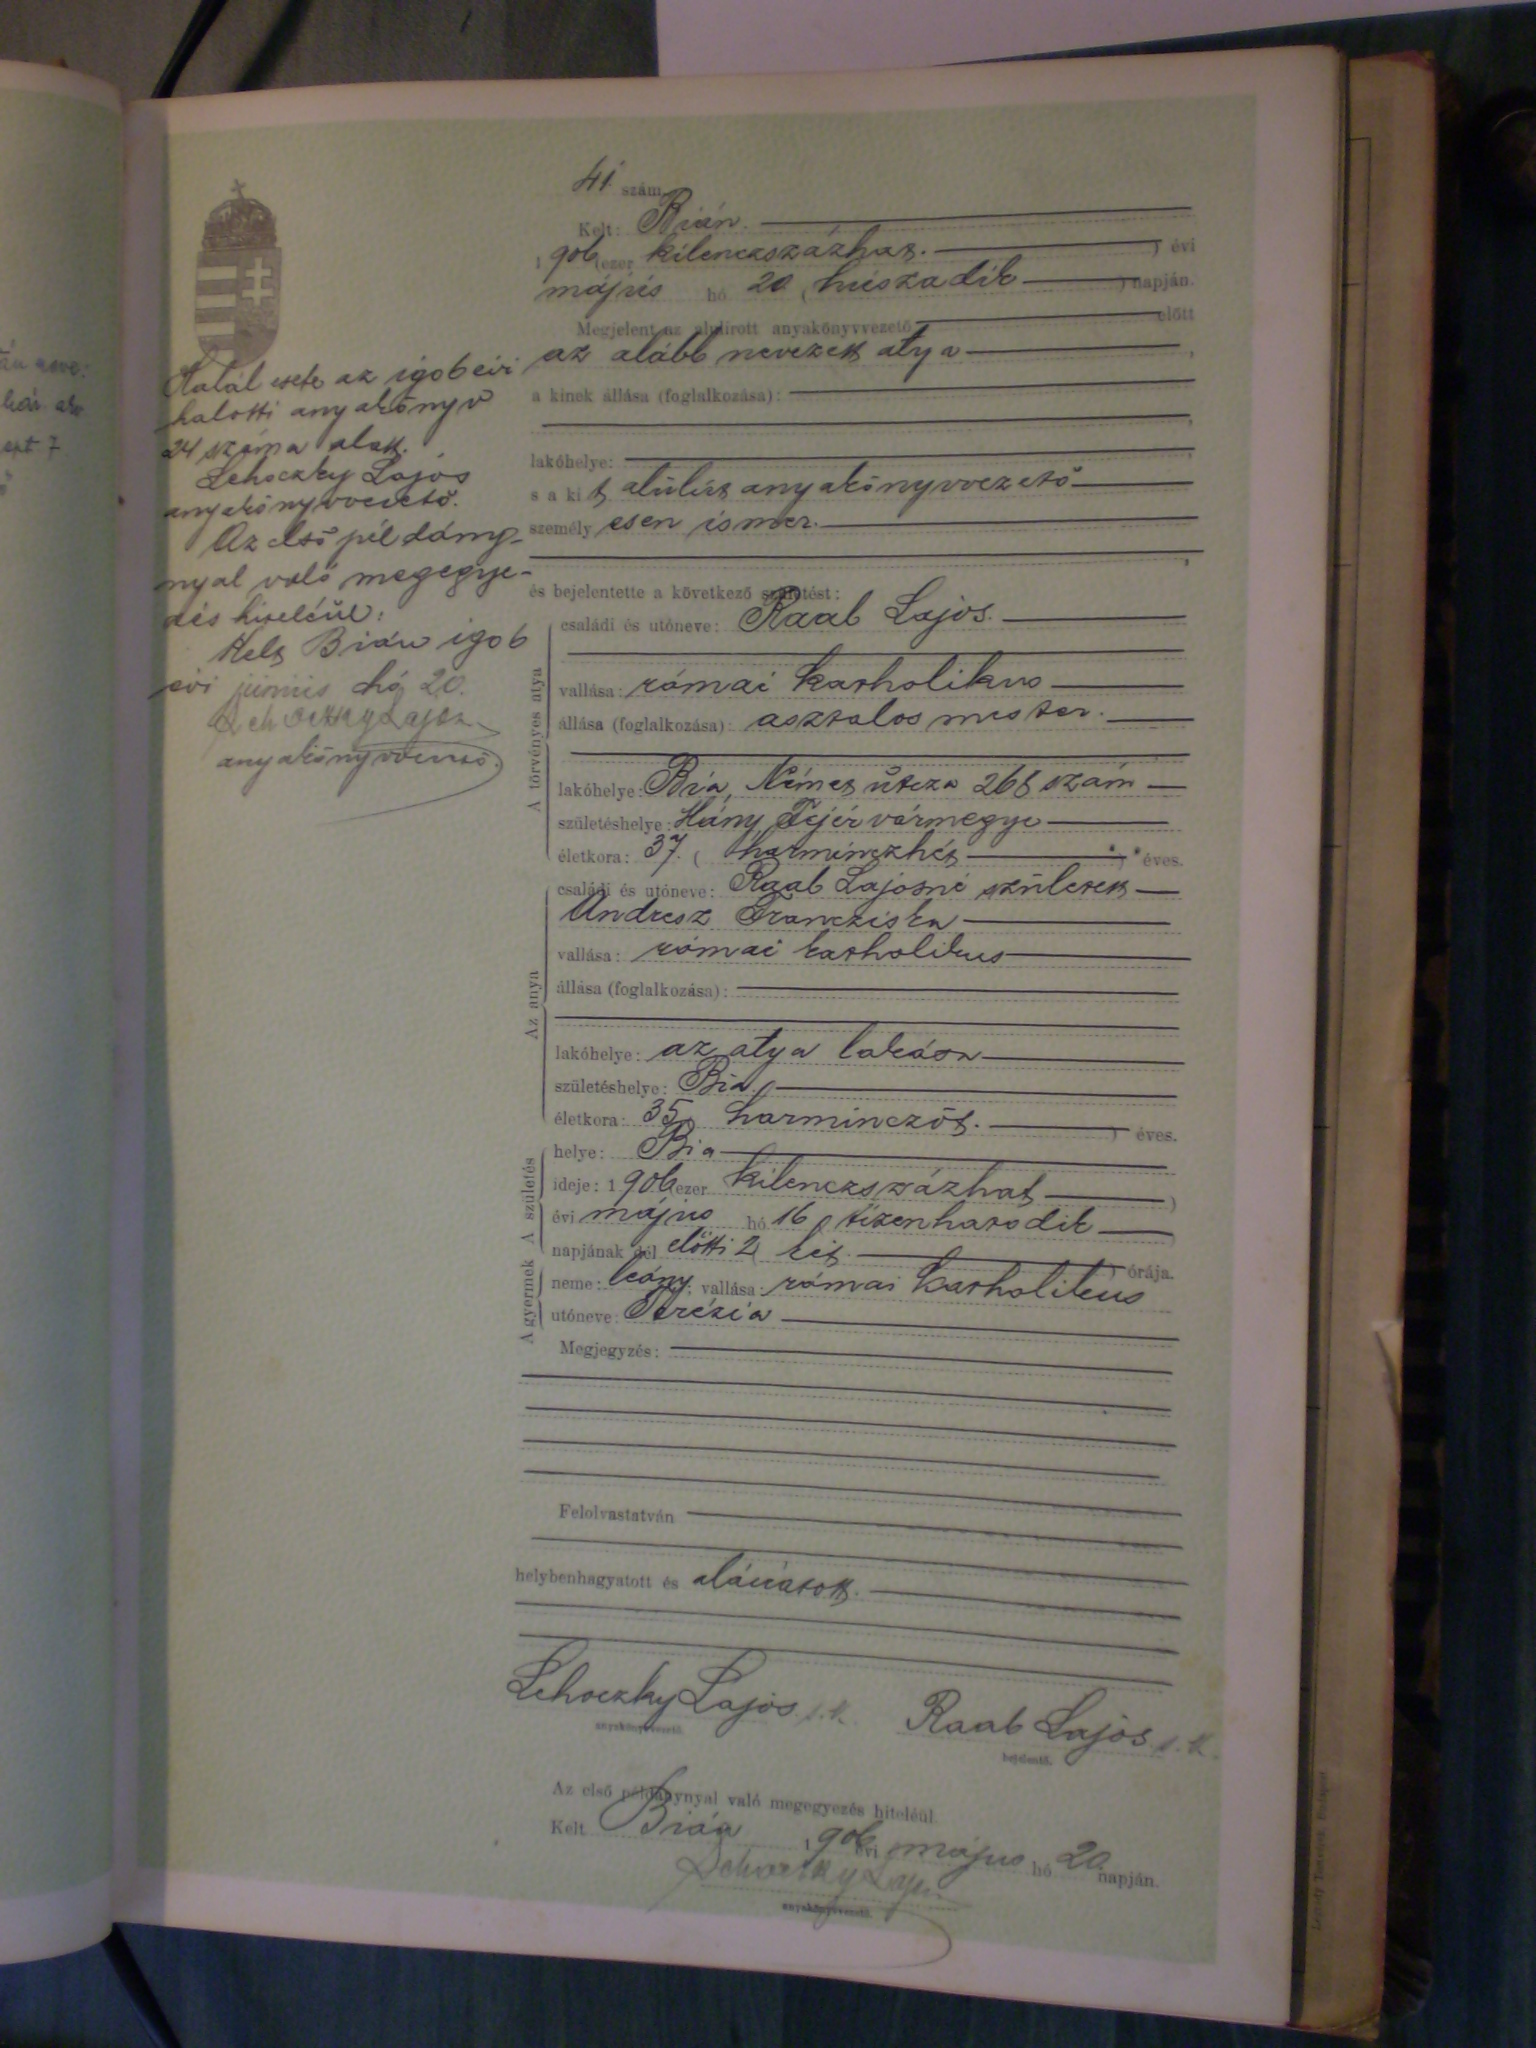 41 szám
Kelt: Bián.
1906 (ezer kilenczszázhat.) évi
május hó 20 (húszadik) napján.
Megjelent az alulirott anyakönyvvezető előtt
az alább nevezett atya,
a kinek állása (foglalkozása):
lakóhelye:
s a kit alulírt anyakönyvvezető
személyesen ismer.
és bejelentette a következő születést:
A törvényes atya
családi és utóneve: Raab Lajos.
vallása: római katholikus
állása (foglalkozása): asztalos mester.
lakóhelye: Bia, Német útcza 268 szám
születéshelye: Hány, Fejér vármegye
életkora: 37. (harminczhét) éves.
Az anya
családi és utóneve: Raab Lajosné született
Andresz Francziska
vallása: római katholikus
állása (foglalkozása):
lakóhelye: az atya lakása
születéshelye: Bia,
életkora: 35, harminczöt. ) éves.
A születés
helye: Bia
ideje: 1906 (ezer kilenczszázhat)
évi május hó 16 (tizenhatodik
napjának dél előtti 2 (két.) órája.
A gyermek
neme: leány; vallása: római katholikus
utóneve: Terézia
Megjegyzés:
Felolvastatván
helybenhagyatott és aláiratott.
Lehoczky Lajos s.k. Raab Lajos s.k.
anyakönyvvezető. bejelentő.
Az első példánynyal való megegyezés hiteléül
Kelt Bián 1906 évi május hó 20 napján.
Lehoczky Lajos
anyakönyvvezető.
Halál esete az 1906 évi
halotti anyakönyv
24 száma alatt.
Lehoczky Lajos
anyakönyvvezető.
Az első példány-
nyal való megegye-
zés hiteléül:
Kelt Bián 1906
évi június hó 20.
Lehoczky Lajos
anyakönyvvezető.